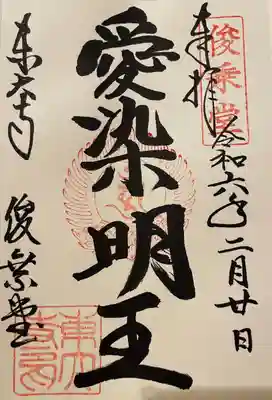 俊乗堂
奉拝
令和六年二月廿日
愛染明王
東大寺
俊乗堂